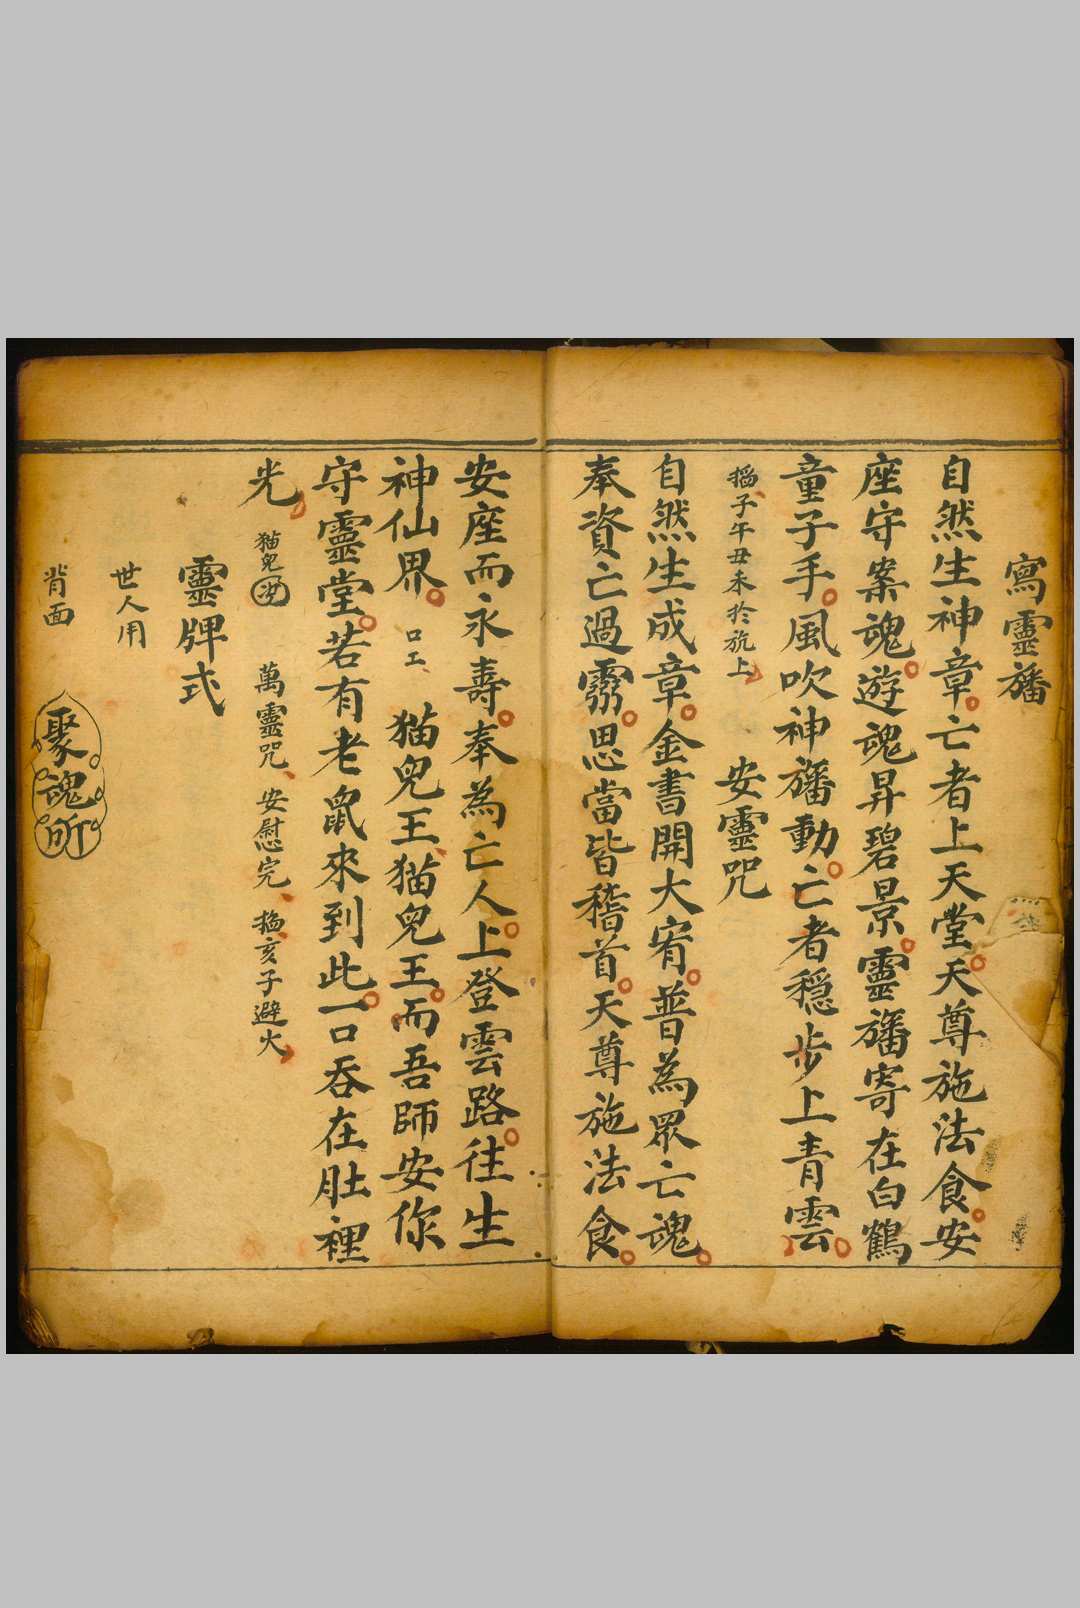 寫靈旛
自然生神章亡者上天堂天尊施法食安
座守案魂遊魂昇碧景靈旛寄在白鶴
童子手風吹神旛動亡者穩步上青雲
搯子午丑未於旐上 安靈咒
自然生成章金書開大宥普為眾亡魂
奉資亡過霛思當皆稽首天尊施法食
安座而永壽奉為亡人上登雲路徃生
神仙界 口工 猫兒王猫兒王而吾師安你
守靈堂若有老鼠來到此一口吞在肚裡
光 猫兒 萬靈咒安慰完 搯亥子避火
靈牌式
世人用
背面
聚魂所